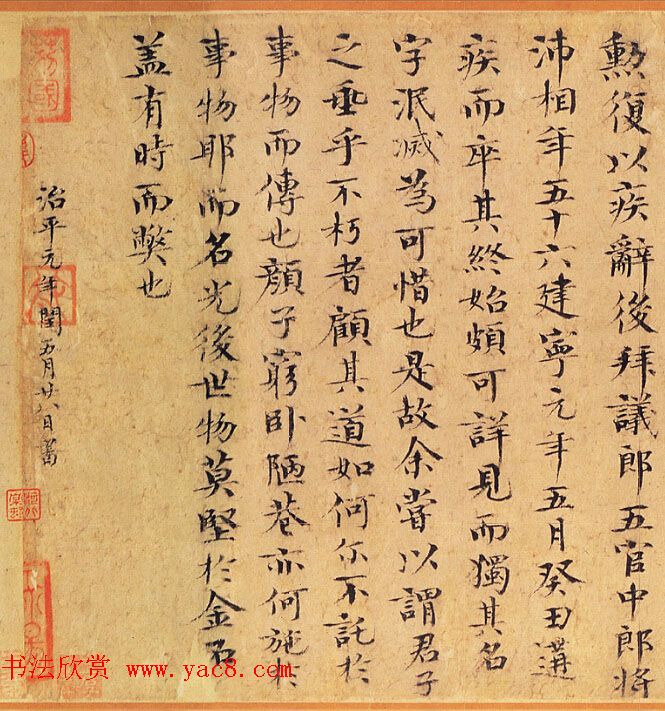 勲復以疾辭後拜議郎五官中郎將
沛相年五十六建寧元年五月癸丑遘
疾而卒其終始頗可詳見而獨其名
字泯滅為可惜也是故余嘗以謂君子
之垂乎不朽者顧其道如何尒不託於
事物而傳也顏子窮臥陋巷亦何施於
事物耶而名光後世物莫堅於金石
盖有時而弊也
治平元年閏五月廿八日書
书法欣赏 www.yac8.com